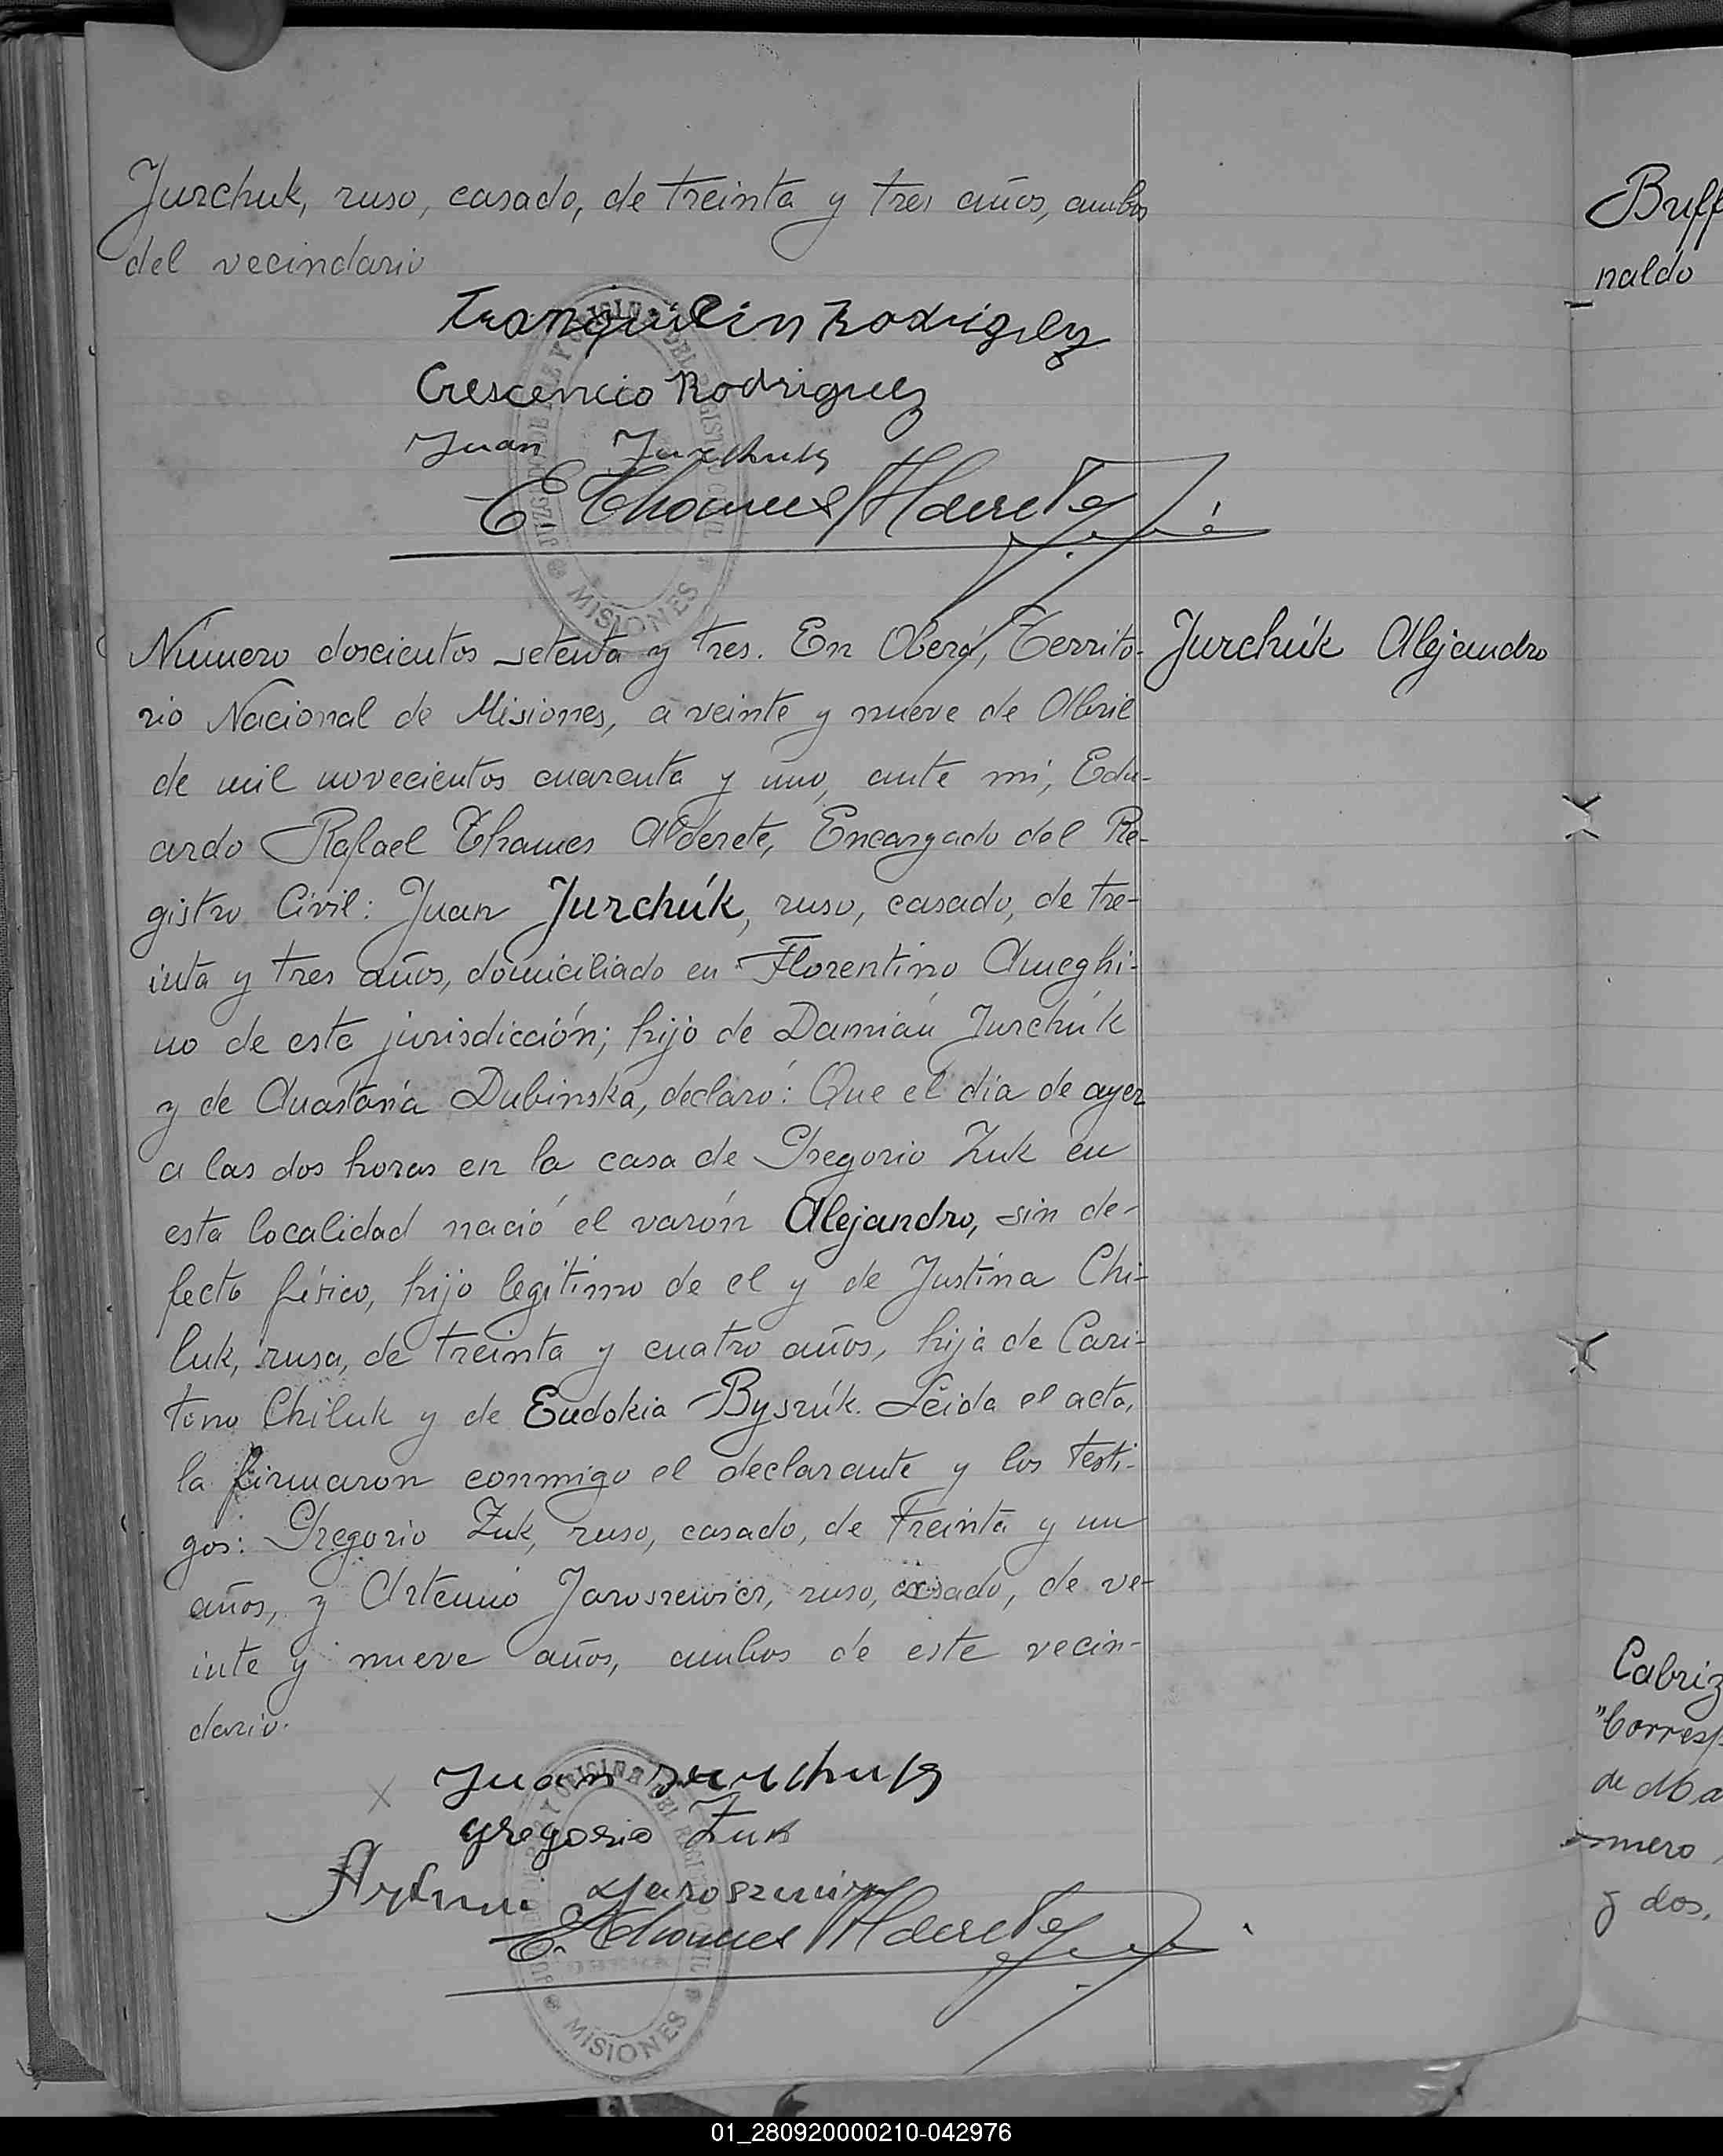 Jurchuk, ruso, casado, de treinta y tres años, ambos
del vecindario
Tranquilin Rodriguez
Crescencio Rodriguez
Juan Jurchuk
E Thames Alderete
MISIONES
Número doscientos setenta y tres. En Oberá, Territo-
rio Nacional de Misiones, a veinte y nueve de Abril
de mil novecientos cuarenta y uno, ante mi, Edu-
ardo Rafael Thames Alderete, Encargado del Re-
gistro Civil: Juan Jurchúk, ruso, casado, de tre-
inta y tres años, domiciliado en Florentino Ameghi-
no de esta jurisdicción; hijo de Damián Jurchúk
y de Anastasia Dubinska, declaró: Que el día de ayer
a las dos horas en la casa de Gregorio Zuk en
esta localidad nació el varón Alejandro, sin de-
fecto físico, hijo legítimo de el y de Justina Chi-
luk, rusa, de treinta y cuatro años, hija de Cari-
tono Chiluk y de Eudokia Byszúk. Leida el acta,
la firmaron conmigo el declarante y los testi-
gos: Gregorio Zuk, ruso, casado, de treinta y un
años, y Artemio Jaroszewicz, ruso, casado, de ve-
inte y nueve años, ambos de este vecin-
dario.
Jurchúk Alejandro
X Juan Jurchuk
Gregorio Zuk
E. Thames Alderete
MISIONES
Buff
naldo
Cabriz
"Corresp
de Ma
mero
y dos,
01_280920000210-042976